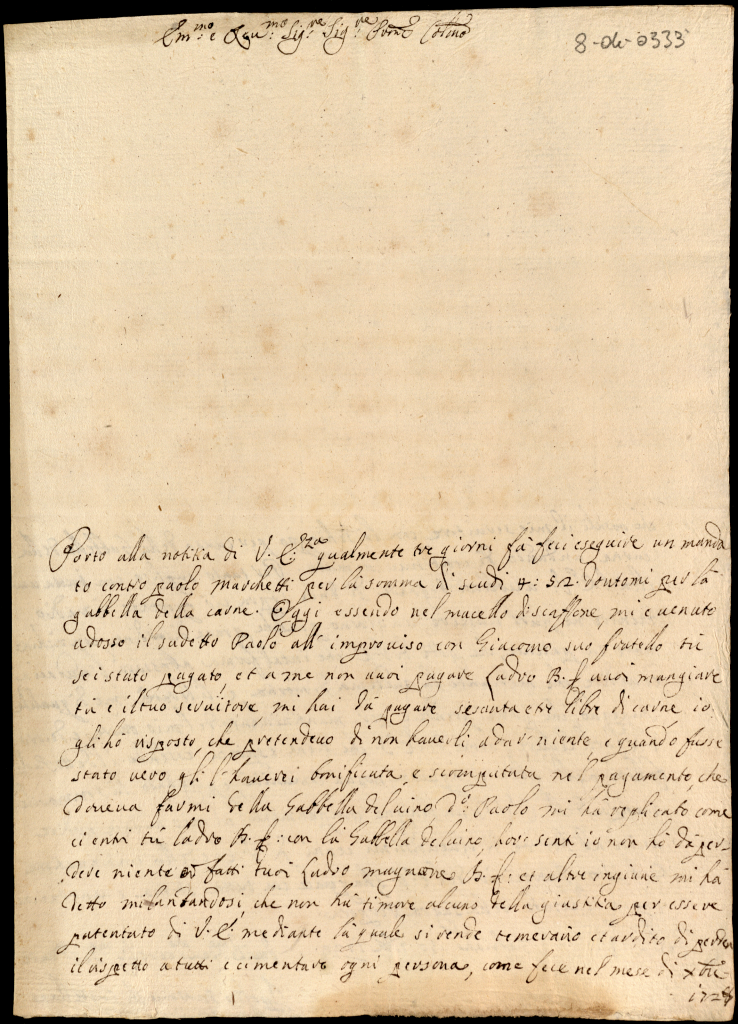 Em.mo e Reu.mo Sig.re Sig.re Prone Colmo
8-de-0333
Porto alla notitia di V. E.nza qualmente tre giorni fà feci eseguire un manda
to contro paolo marchetti per la somma di scudi 4: 52 doutomi per la
gabbella della carne. Oggi essendo nel macello di scaffone, mi è uenuto
adosso il sudetto Paolo all' improuiso con Giacomo suo fratello tù
sei stato pagato, et a me non uuoi pagare Ladro B. f uuoi mangiare
tù e il tuo seruitore, mi hai dà pagare sesanta e tre libre di carne io
gli hò risposto, che pretendeuo di non hauerli a dar niente, e quando fusse
stato uero gli l'hauerei bonificata, e scomputata nel pagamento, che
doueua farmi della Gabbella del uino, d.o Paolo mi hà replicato come
ci entri tù ladro B. f: con la Gabbella del uino, hor senti io non hò dà per
dere niente fatti tuoi Ladro magnone B. f: et altre ingiurie mi hà
detto milantandosi, che non hà timore alcuno della giustitia per essere
patentato di V. E. mediante la quale si rende temerario et ardito di perder
il rispetto a tutti e cimentare ogni persona, come fece nel mese di xbre
1728